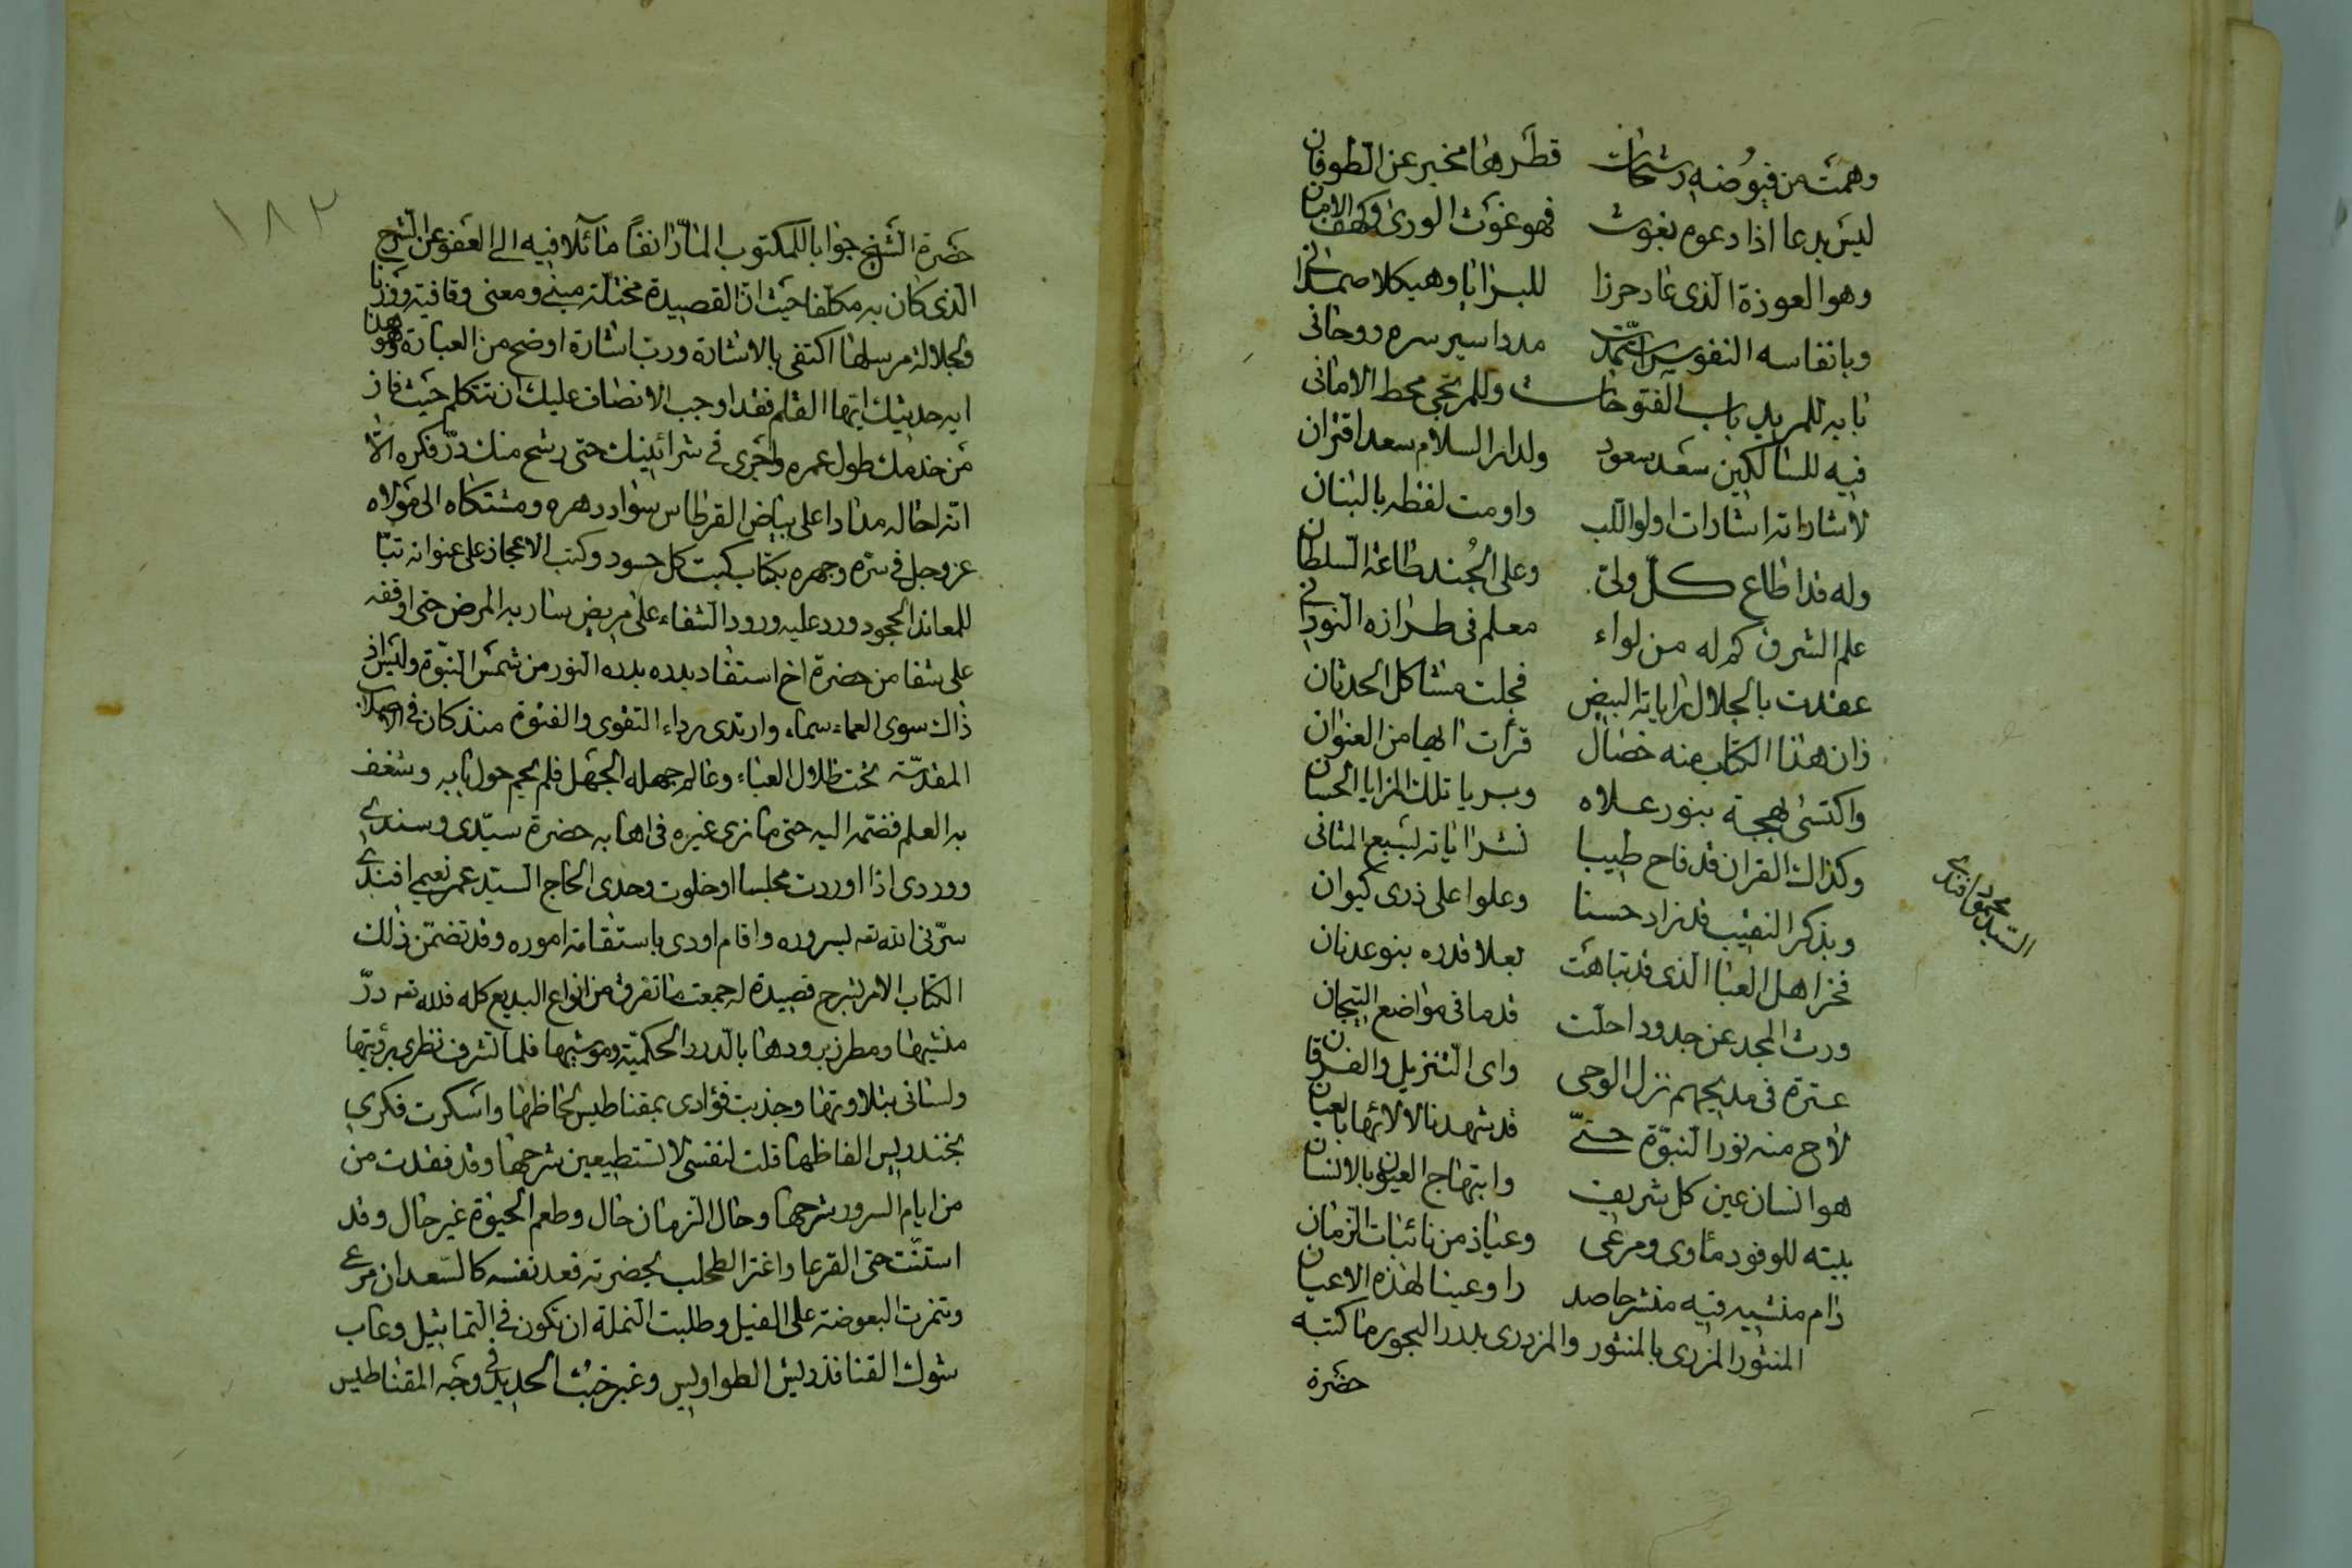 وهمت من فيوضه رشحات قطرها مخبر عن الطوفان
ليس بدعا اذا دعوه بغوث فهو غوث الورى وكهف الامان
وهو العوذة الذى عاد حرزا للبرايا وهيكلا صمدانى
وبانفاسه النفوس استمدت مددا سير سره روحانى
بابه للمريد باب الفتوحات وللمرتجى محط الامانى
فيه للسالكين سعد سعود ولدار السلام سعد اقتران
لاشاراته اشارات اولوا اللب واومت لفظه بالبنان
وله قد اطاع كل ولى وعلى الجند طاعة السلطان
علم الشرف كم له من لواء معلم فى طرازه النورانى
عقدت بالجلال راياته البيض فجلت مشاكل الحدثان
زان هذا الكتاب منه خصال قرأت ايها من العنوان
واكتسى بهجة بنور علاه وبريا تلك المزايا الحسان
وكذاك القران قد فاح طيبا نشر اياته لسبع المثانى
وبذكر النقيب قد زاد حسنا وعلوا على ذرى كيوان
السيد محمود افندى
فخر اهل العبا الذى قد تباهت بعلا قدره بنو عدنان
ورث المجد عن جدود احلت قدما فى مواضع التيجان
عترة فى مديحهم نزل الوحى واى التنزيل والفرقان
لاح منه نور النبوة حتى قد شهدنا لالائها بالعيان
هو انسان عين كل شريف وابتهاج العيون بالانسان
بيته للوفود مأوى ومرعى وعياذ من نائبات الزمان
دام منشيه فيه منشرحا صدرا وعينا لهذه الاعيان
المنثور المزرى بالمنثور والمزدرى بدرر البحور ما كتبه
حضرة
١٨٣
حضرة الشيخ جوابا للمكتوب المار انفا مائلا فيه الى العفو عن الشرح
الذى كان به مكلفا حيث ان القصيدة مختلة مبنى ومعنى وقافية ووزنا
ولجلالة مرسلها اكتفى بالاشارة ورب اشارة اوضح من العبارة وهو هذا
ايه حديثك ايها القلم فقد اوجب الانصاف عليك ان تتكلم حيث فاز
من خدمك طول عمره واجرى فى شرائينك حتى رشح منك در فكره الا
انه احاله مدادا على بياض القرطاس سواد دهره ومشتكاه الى مولاه
عز وجل فى سره وجهره بكتاب كبت كل حسود وكتب الاعجاز على عنوانه تبا
للمعاند الجحود ورد عليه ورود الشفاء على مريض سار به المرض حتى اوقفه
على شفا من حضرة اخ استفاد بدره بدره النور من شمس النبوة وليس اذ
ذاك سوى العماء سماء وارتدى برداء التقوى والفتوة منذ كان فى الاصلاب
المقدسة تحت ظلال العباء وعالم جهله الجهل فلم يحم حول بابه وشغف
به العلم فضمه اليه حتى ما نرى غيره فى اهابه حضرة سيدى وسندى
ووردى اذا اوردت مجلسا او خلوت وحدى الحاج السيد عمر نعيمى افندى
سرنى الله تعه بسروره واقام اودى باستقامة اموره وقد تضمن ذلك
الكتاب الامر بشرح قصيدة له جمعت ما تفرق من انواع البديع كله فلله تعه در
منشيها ومطرز برودها بالدرر الحكمية وموشيها فلما تشرف نظرى برؤيتها
ولسانى بتلاوتها وجذبت فؤادى بمقناطيس الحاظها واسكرت فكرى
بخندريس الفاظها قلت لنفسى لا تستطيعين شرحها وقد فقدت من
من ايام السرور شرحها وحال الزمان حال وطعم الحيوة غير حال وقد
استنت حتى القرعا واغتر الطحلب بخضرته فعد نفسه كالسعدان مرعى
وتنمرت البعوضة على الفيل وطلبت النملة ان تكون فى التماثيل وعاب
شوك القنافذ ريش الطواويس وغبر خبث الحديد فى وجه المقناطيس